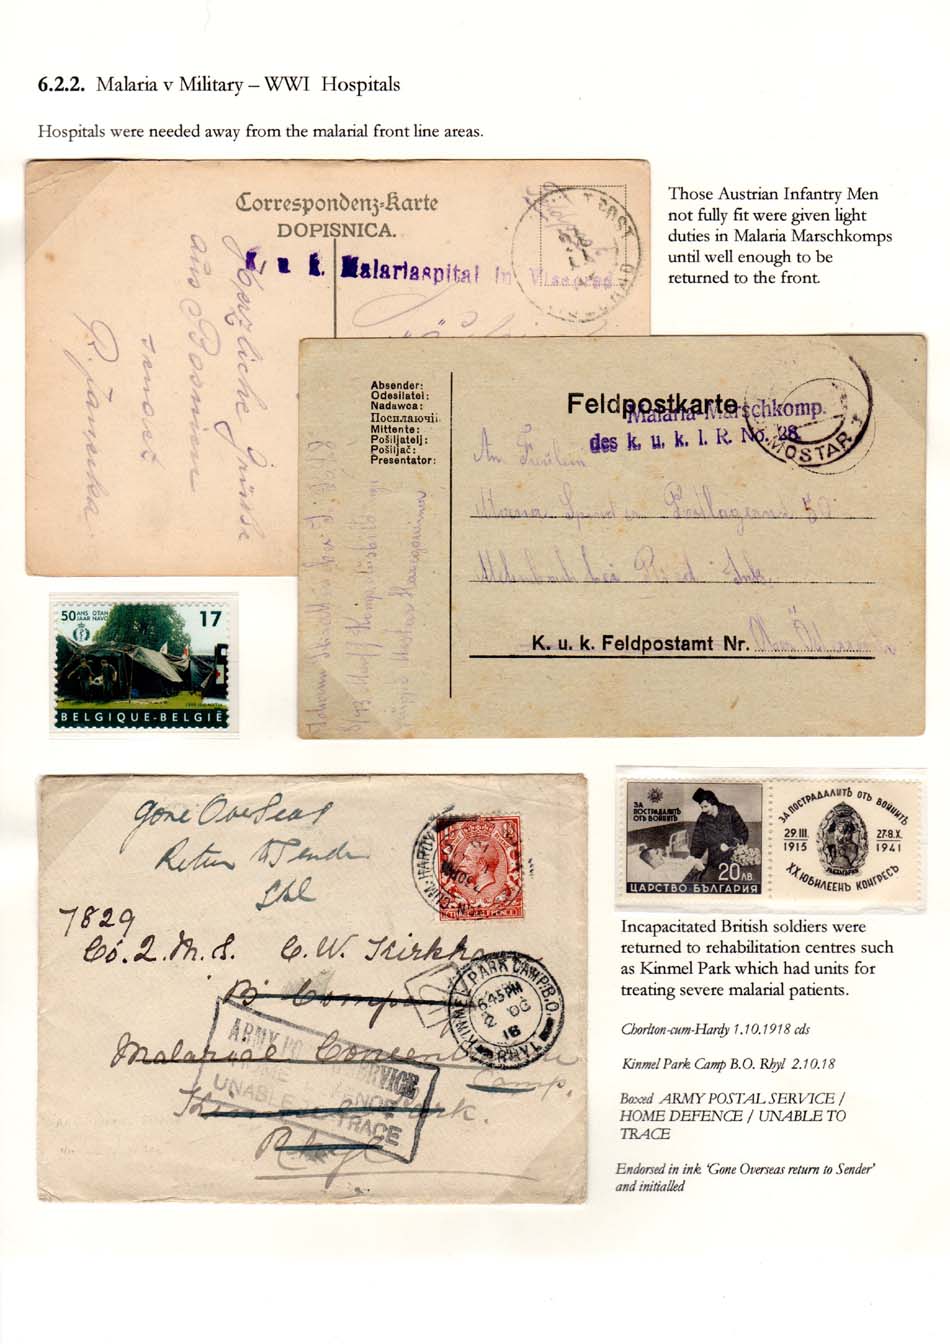 6.2.2. Malaria v Military – WWI Hospitals
Hospitals were needed away from the malarial front line areas.
Correspondenz-Karte
DOPISNICA.
K. u k. Malariaspital in Visegrad
POST
Herzliche Grüsse
aus Bosnien
sendet
R. Janeska
Those Austrian Infantry Men
not fully fit were given light
duties in Malaria Marschkomps
until well enough to be
returned to the front.
Absender:
Odesilatel:
Nadawca:
Посилаючiй:
Mittente:
Pošiljatelj:
Pošiljač:
Presentator:
Feldpostkarte
Malaria-Marschkomp.
des k. u. k. I. R. No. 28
MOSTAR
An Fräulein
Maria
K. u k. Feldpostamt Nr.
50 ANS OTAN
JAAR NAVO
17
BELGIQUE-BELGIË
Gone Overseas
Return to Sender
CUM-HARDY
7829
Co. 2. M. S. C. W. Kirkha
B Company
Malarial Concen
Camp.
Kinmel Park.
Rhyl
KINMEL PARK CAMP B.O.
6.45PM
2 OC
18
RHYL
ARMY POSTAL SERVICE
HOME DEFENCE
UNABLE TO TRACE
ЗА
ПОСТРАДАЛИТѢ
ОТЪ ВОЙНИТѢ
20 ЛВ.
ЦАРСТВО БЪЛГАРИЯ
ЗА ПОСТРАДАЛИТѢ ОТЪ ВОЙНИТѢ
29.III. 27-8.X.
1915 1941
XX ЮБИЛЕЕНЪ КОНГРЕСЪ
Incapacitated British soldiers were
returned to rehabilitation centres such
as Kinmel Park which had units for
treating severe malarial patients.
Chorlton-cum-Hardy 1.10.1918 cds
Kinmel Park Camp B.O. Rhyl 2.10.18
Boxed ARMY POSTAL SERVICE /
HOME DEFENCE / UNABLE TO
TRACE
Endorsed in ink ‘Gone Overseas return to Sender’
and initialled